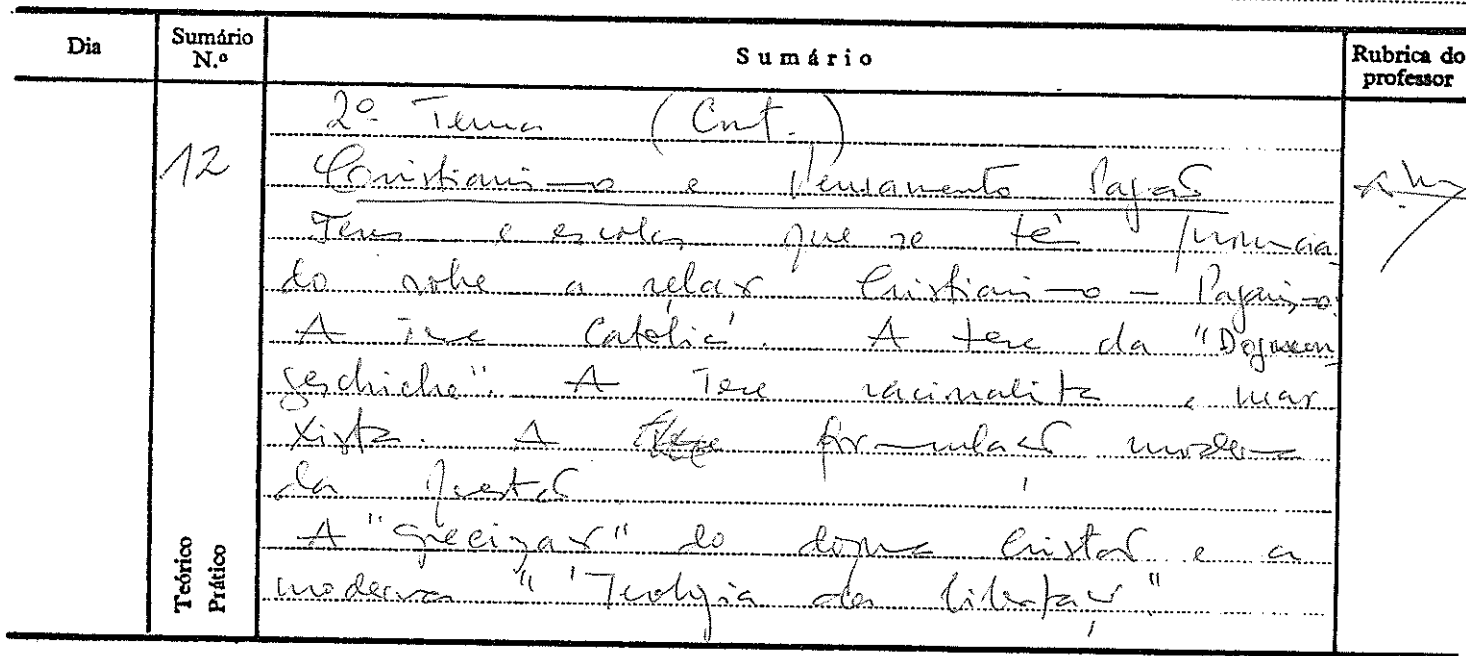 Dia Sumário N.º Sumário Rubrica do professor
2º Tema (Cont.)
12 Cristianismo e Pensamento Pagão
Teses e escolas que se têm pronuncia
do sobre a relação Cristianismo – Paganismo.
A Tese Católica. A tese da "Dogmen
geschichte". A Tese racionalista e mar
xista. A formulação moderna
da questão
A "grecização" do dogma Cristão e a
moderna "Teologia da libertação"
Teórico
Prático